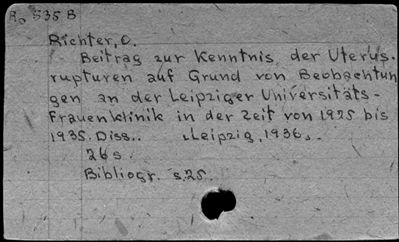 Ro 535 B
Richter, O.
Beitrag zur Kenntnis der Uterus-
rupturen auf Grund von Beobachtun
gen an der Leipziger Universitäts-
Frauenklinik in der Zeit von 1925 bis
1935. Diss.. Leipzig, 1936.
26 s.
Bibliogr. s.25.